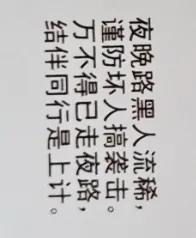 夜晚路黑人流稀，
谨防坏人搞袭击。
万不得已走夜路，
结伴同行是上计。